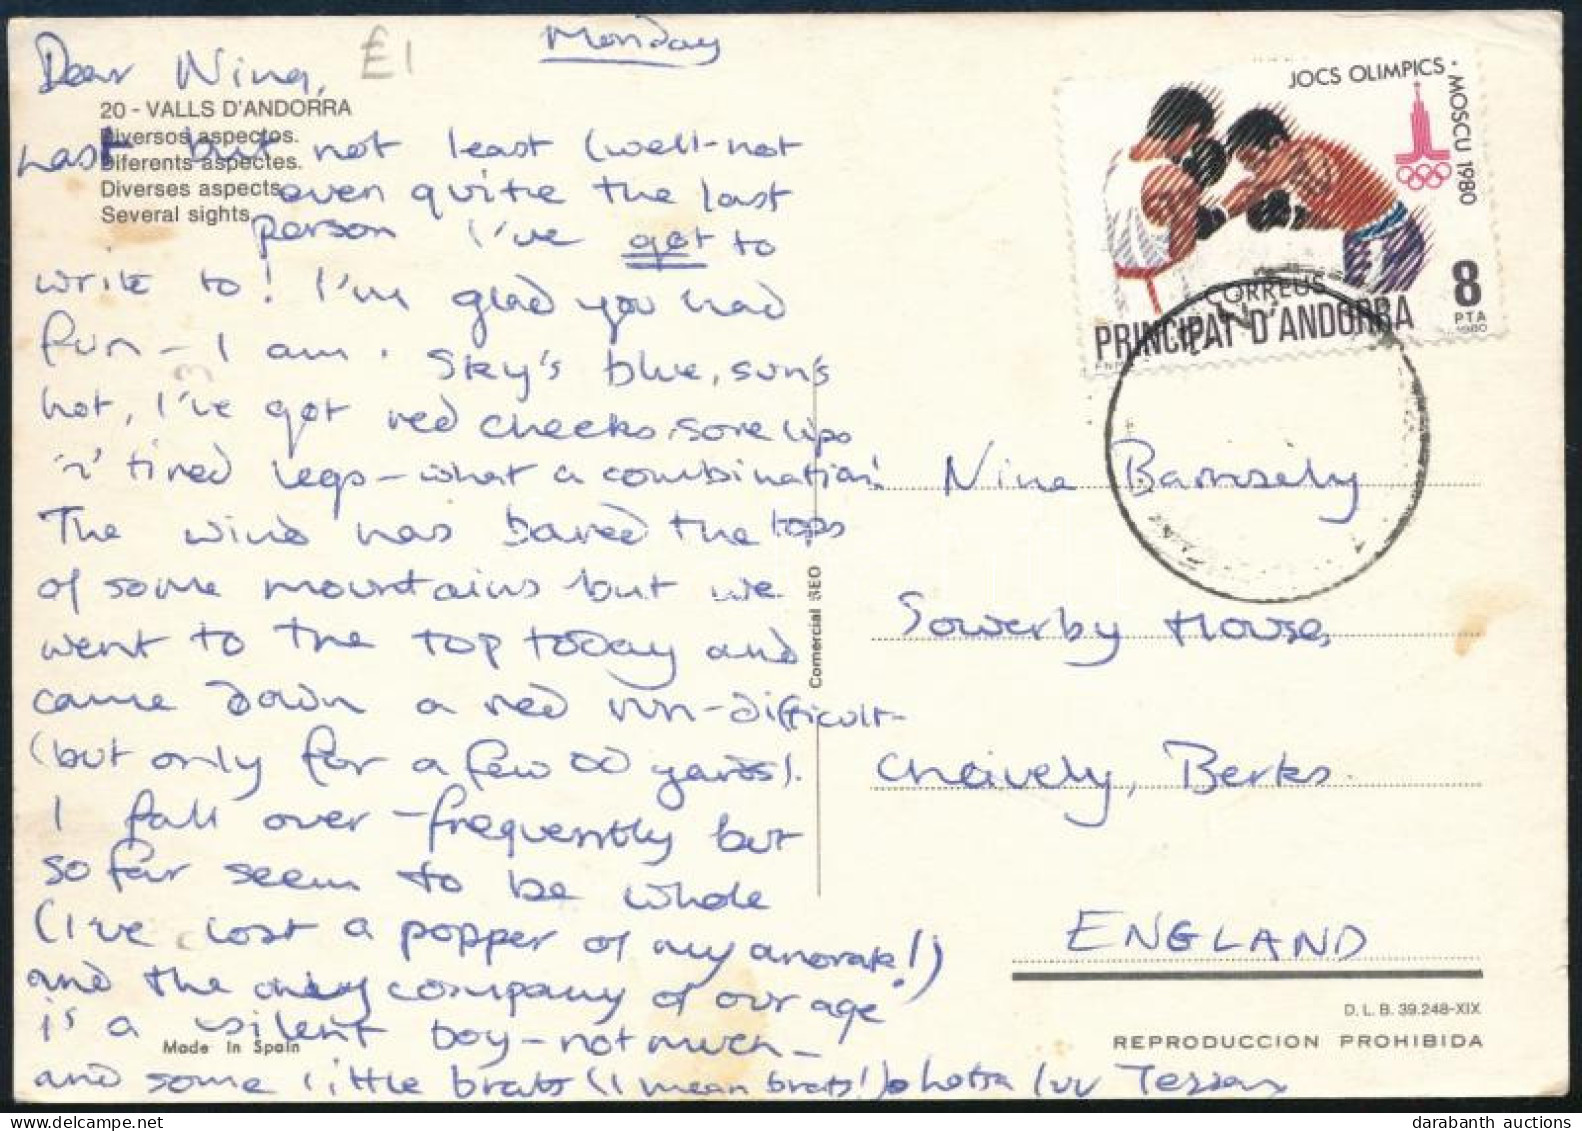 Monday
Dear Nina,
£1
20 - VALLS D'ANDORRA
Diversos aspectos.
Diferents aspectes.
Diverses aspects.
Several sights.
Last but not least (well-not
even quite the last
person I've got to
write to! I'm glad you had
fun - I am. Sky's blue, sun's
hot, I've got red cheeks, sore lips
'n' tired legs - what a combination!
The wind has bared the tops
of some mountains but we
went to the top today and
came down a red run - difficult -
(but only for a few 00 yards).
I fall over - frequently but
so far seem to be whole
(I've lost a popper of my anorak!)
and the only company of our age
is a silent boy - not much -
and some little brats (I mean brats!) lotsa luv
Made In Spain
Comercial SEO
JOCS OLIMPICS · MOSCU 1980
CORREUS
PRINCIPAT D'ANDORRA
8
PTA
1980
Nina
Sowerby House,
Berks.
ENGLAND
D. L. B. 39.248-XIX
REPRODUCCION PROHIBIDA
darabanth auctions